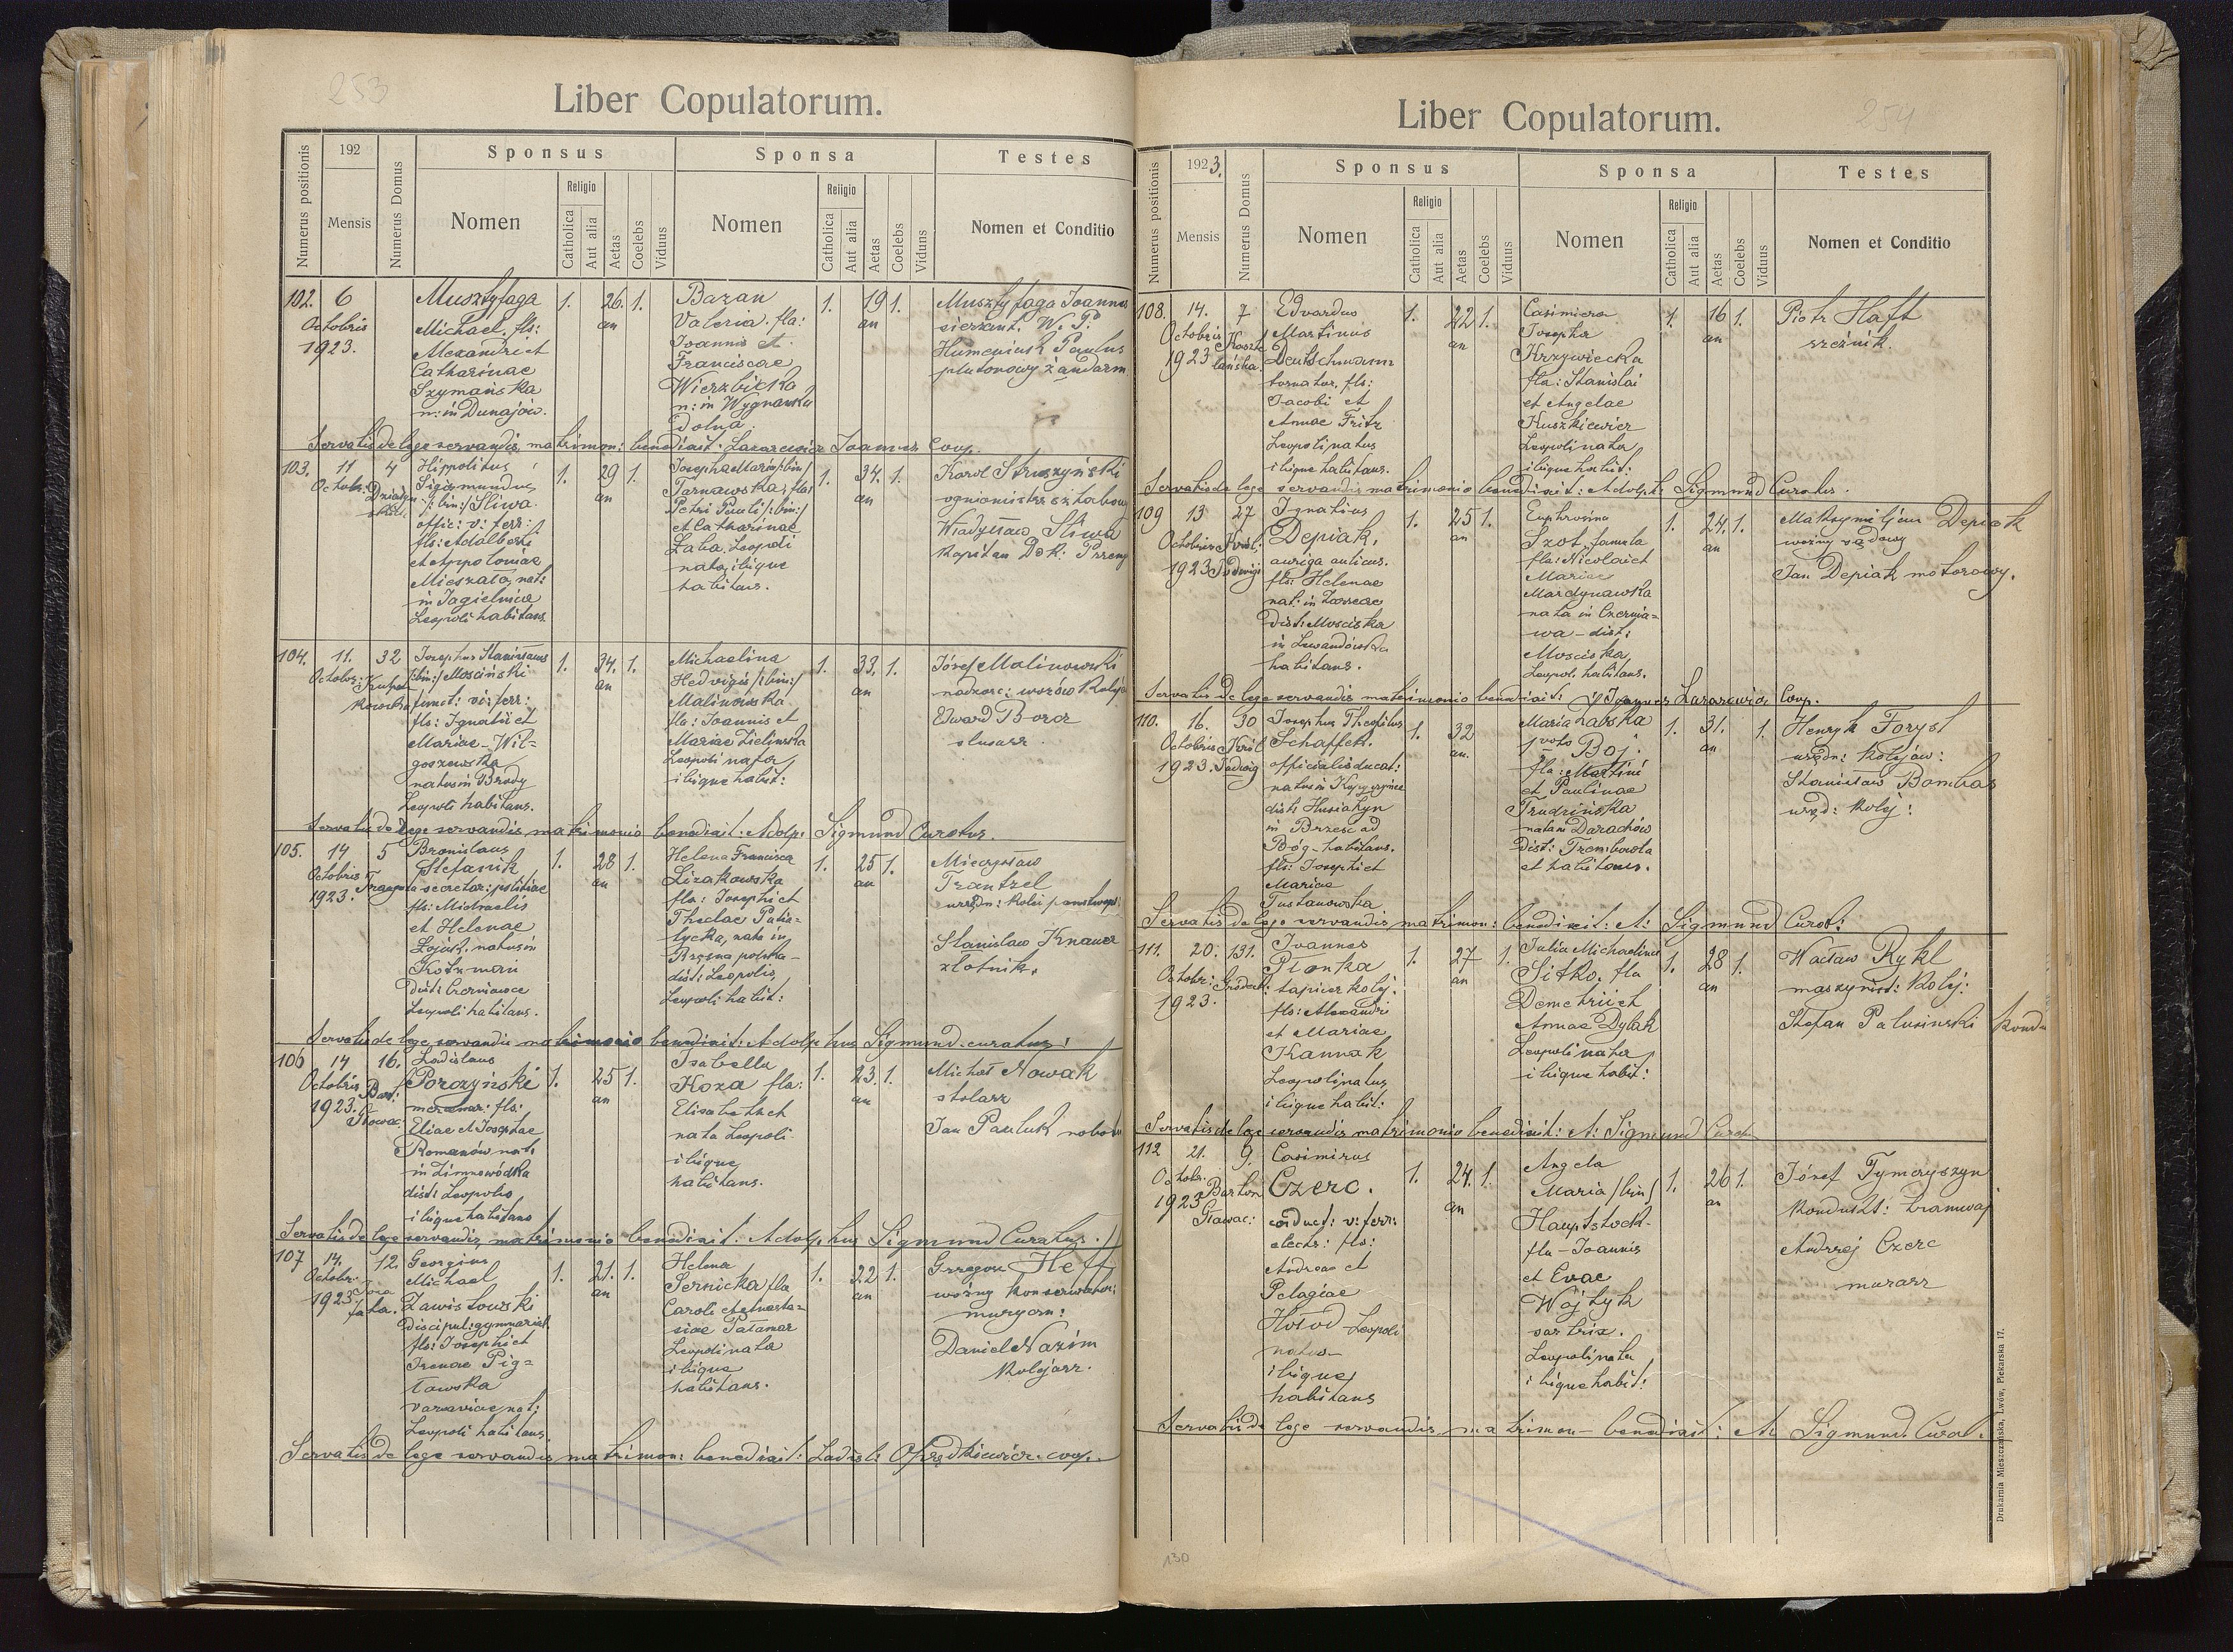 253
Liber Copulatorum.
Numerus positionis
192
Mensis
Numerus Domus
Sponsus
Nomen
Religio
Catholica
Aut alia
Aetas
Coelebs
Viduus
Sponsa
Nomen
Religio
Catholica
Aut alia
Aetas
Coelebs
Viduus
Testes
Nomen et Conditio
102.
6
Octobris
1923.
Musztyfaga
Michael, fls:
Alexandri et
Catharinae
Szymańska
n: in Dunajów.
1.
26.
an
1.
Baran
Valeria. fla:
Joannis et
Franciscae
Wierzbicka
n: in Wygnanka
Dolna.
1.
19
an
1.
Musztyfaga Joannes
sierżant. W. P.
Humeniuk Paulus
plutonowy żandarm
Servatis de lege servandis, matrimon: benedixit. Lazarewicz Joannes Coop.
103.
11
Octobr.
4
Hippolitus
Sigismundus
/:bin:/ Śliwa
offic: v: ferr:
fls: Adalberti
et Appoloniae
Mieszało, nat:
in Jagielnica
Leopoli habitans.
1.
29
an
1.
Josepha Maria /:bin/
Tarnawska, fla:
Petri Pauli /:bin:/
et Catharinae
Łaba. Leopoli
nata, ibique
habitans.
1.
34.
an
1.
Karol Struszyński
ogniomistrz sztabowy
Władysław Śliwa
kapitan Dok: Przemy
104.
11.
Octobr:
32
Josephus Stanislaus
/:bin:/ Mosciński
funct: viae ferr:
fls: Ignatii et
Mariae - Wil=
goszewska
natus in Brody
Leopoli habitans.
1.
34.
an
1.
Michaelina
Hedvigis /:bin:/
Malinowska
fla: Joannis et
Mariae Zielinska
Leopoli nata,
ibique habit:
1.
33.
an
1.
Józef Malinowski
nadzorc: wozów kolej
Edward Borcz
slusarz.
Servatis de lege servandis matrimonio benedixit: Adolp. Sigmund Curatus.
105.
14
Octobris
1923.
5
Bronislaus
Stefanik
secretar: politiae
fls: Michaelis
et Helenae
Łojuk. natus in
Kotzman
dist: Czerniowce
Leopoli habitans.
1.
28
an
1.
Helena Francisca
Lizakowska
fla: Josephi et
Theclae Palia=
lycka, nata in
Brzsna polska -
dist: Leopolis,
Leopoli habit:
1.
25
an
1.
Mieczysław
Frantzel
urzędn: kolei państwow:
Stanislaw Knauer
złotnik.
Servatis de lege servandis matrimonio benedixit: Adolphus Sigmund. curatus!
106
14
Octobris
1923.
16.
Bart:
Głowac:
Ladislaus
Porczyński
fls:
Eliae et Josephae
Romanów nat:
in Zimnowódka
dist: Leopolis
ibique habitans
1.
25
an
1.
Isabella
Koza fla:
Elisabeth et
nata Leopoli
ibique
habitans.
1.
23.
an
1.
Michał Nowak
stolarz
Jan Pauluk robotn
Servatis de lege servandis, matrimonio benedixit. Adolphus Sigmund Curatus.
107
14.
Octobr.
1923
12.
Georgius
Michael
Zawistowski
discipul: gymnasial.
fls: Josephi et
Irenae Pig=
łowska
varsaviae nat:
Leopoli habitans.
1.
21.
an
1.
Helena
Sernicka fla
Caroli et Anasta=
siae Patamar
Leopoli nata
ibique
habitans.
1.
22
an
1.
Grzegorz Heff
woźny konserwator:
muzyczn:
Daniel Nazim
kolejarz.
Servatis de lege servandis matrimon: benedixit: Ladisl: Oprzędkiewicz. coop.
254
Liber Copulatorum.
Numerus positionis
1923.
Mensis
Numerus Domus
Sponsus
Nomen
Religio
Catholica
Aut alia
Aetas
Coelebs
Viduus
Sponsa
Nomen
Religio
Catholica
Aut alia
Aetas
Coelebs
Viduus
Testes
Nomen et Conditio
108.
14.
Octobris
1923
7
Edvardus
Martinus
Deutschmann
tornator. fls:
Jacobi et
Annae Fritz
Leopoli natus
ibique habitans.
1.
22
an
1.
Casimiera
Josepha
Krzywiecka
fla: Stanislai
et Angelae
Kuszkiewicz
Leopoli nata,
ibique habit:
1.
16
an
1.
Piotr Haft
rzeźnik.
Servatis de lege servandis matrimonio benedixit: Adolph: Sigmund Curatus.
109
13
Octobris
1923
27
Król:
Jadwigi
Ignatius
Depiak,
auriga anticus.
fls: Helenae
nat: in
dist: Mosciska
in Lewandówka
habitans.
1.
25
an
1.
Euphrosina
Szot, famula
fla: Nicolai et
Mariae
Mardynawska
nata in Czernia=
wa - dist:
Mosciska,
Leopoli habitans.
1.
24.
an
1.
Maksymiljan Depiak
woźny sądowy
Jan Depiak motorowy.
Servatis de lege servandis matrimonio benedixit: Joannes Lazarewicz Coop.
110.
16.
Octobris
1923.
30
Król
Jadwig
Josephus Theophilus
Schaffek.
officialis ducat:
natus in
dist: Husiatyn
in Brześć ad
Bóg - habitans.
fls: Josephi et
Mariae
Tustanowska
1.
32
an.
Maria Labska
1 voto Boj.
fla: Martini
et Paulinae
Trudzińska
nata in Darachów
dist: Trembowla
et habitans.
1.
31.
an
1.
Henryk Foryst
urzędn: kolejow:
Stanisław Bombas
urzęd: kolej:
Servatis de lege servandis matrimon: benedixit: A: Sigmund Curat:
111.
20.
Octobr:
1923.
131.
Gródeck:
Joannes
Płonka
tapicer kolej.
fls: Alexandri
et Mariae
Kannak
Leopoli natus
ibique habit:
1.
27
an
1.
Julia Michaelina
Sitko. fla
Demetrii et
Annae Dylak
Leopoli nata,
ibique habit:
1.
28
an
1.
Wacław Rykl
maszynist: kolej:
Stefan Palusinski kondu
Servatis de lege servandis matrimonio benedixit: A: Sigmund Curat
112
21.
Octobr:
1923
9.
Barton
Głowac:
Casimirus
Czerc.
conduct: v: ferr:
electr: fls:
Andreae et
Pelagiae
Hołod - Leopoli
natus -
ibique
habitans
1.
24.
an
1.
Angela
Maria /bin/
Hauptstock -
fla - Joannis
et Evae
Wojtyk
sartrix.
Leopoli nata,
ibique habit:
1.
26
an
1.
Józef Tymczyszyn
kondukt: tramwaj
Andrzej Czerc
murarz
Servatis de lege servandis, matrimon - benedixit: A. Sigmund. Curat.
130
Drukarnia Mieszczańska, Lwów, Piekarska 17.